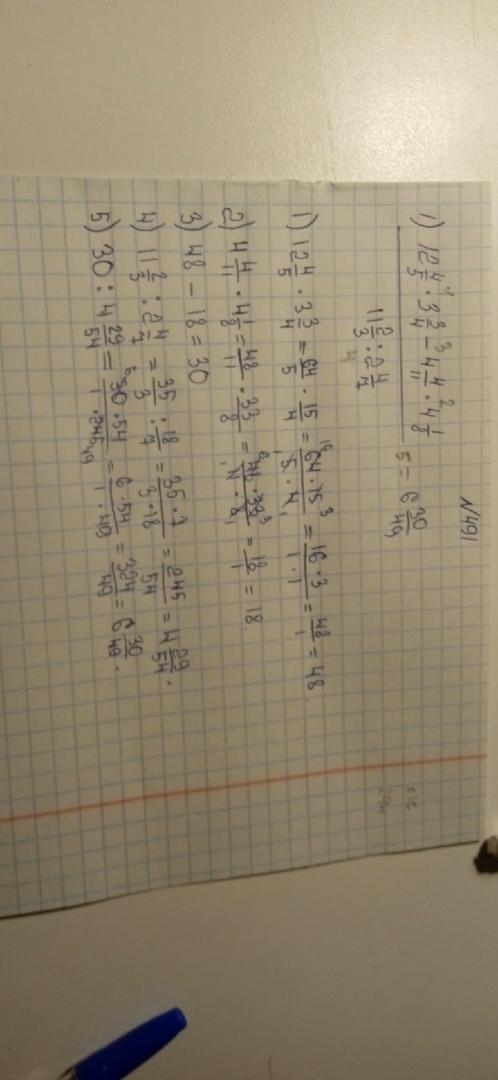 №491
1) 12 4/5 · 3 3/4 − 4 4/11 · 4 1/8
11 2/3 : 2 4/7
5 = 6 30/49
1) 12 4/5 · 3 3/4 = 64/5 · 15/4 = 64·15/5·4 = 16·3/1·1 = 48/1 = 48
2) 4 4/11 · 4 1/8 = 48/11 · 33/8 = 48·33/11·8 = 18/1 = 18.
3) 48 − 18 = 30
4) 11 2/3 : 2 4/7 = 35/3 : 18/7 = 35·7/3·18 = 245/54 = 4 29/54.
5) 30 : 4 29/54 = 30·54/1·245 = 6·54/1·49 = 324/49 = 6 30/49.